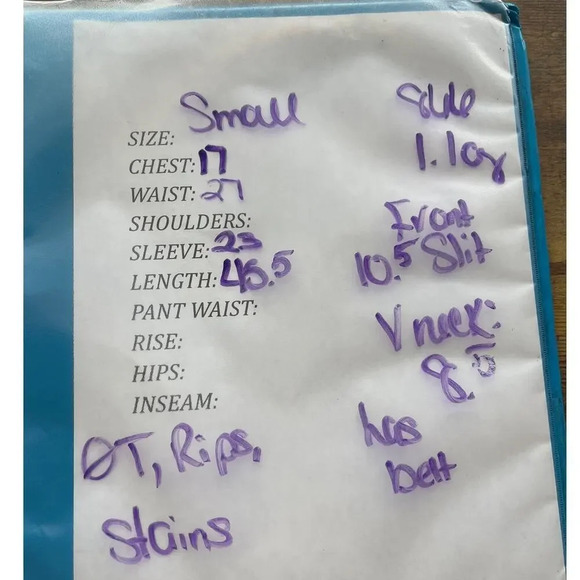 SIZE: Small
CHEST: 17
WAIST: 27
SHOULDERS:
SLEEVE: 23
LENGTH: 45.5
PANT WAIST:
RISE:
HIPS:
INSEAM:
ØT, Rips,
Stains
1.1oz
Front
10.5 Slit
V neck:
8.5
has
belt